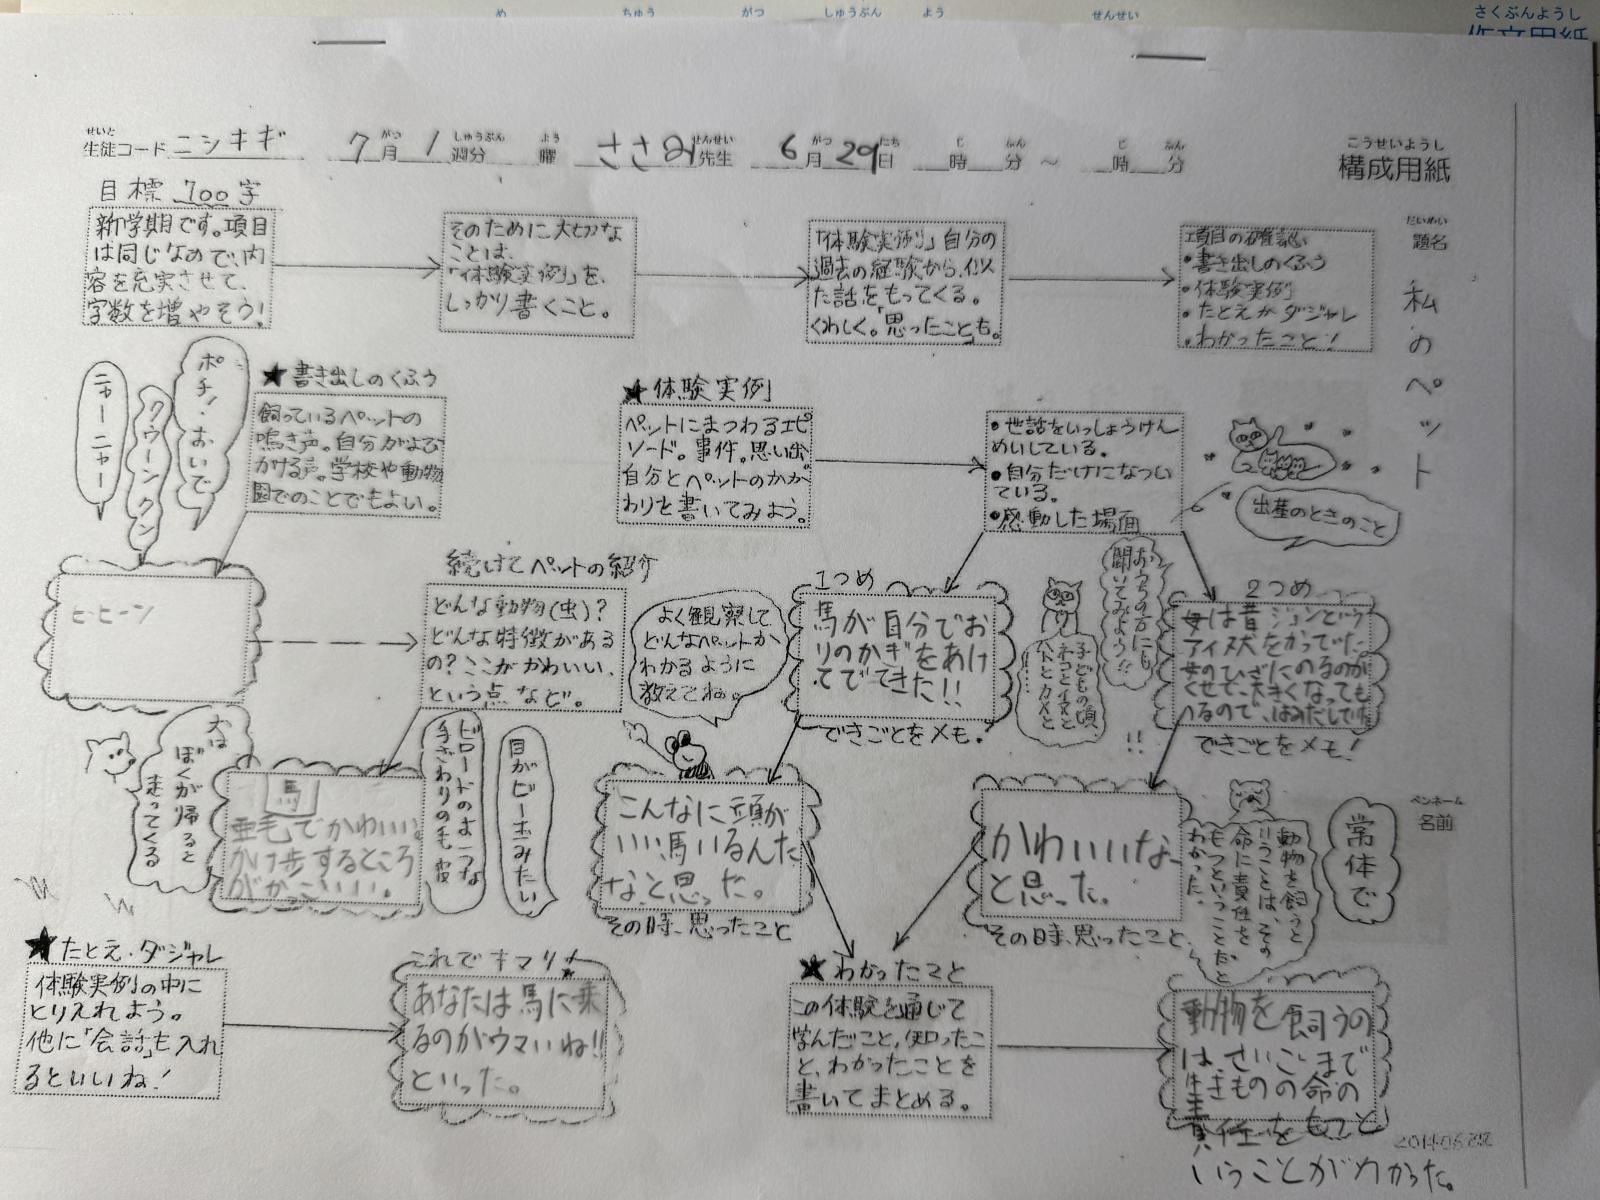 め ちゅう がつ しゅうぶん よう せんせい さくぶんようし
作文用紙
生徒コード ニシキギ 7月 1週分 曜 ささみ先生 6月29日 時 分 ～ 時 分
せいと がつ しゅうぶん よう せんせい がつ にち じ ふん じ ふん
こうせいようし
構成用紙
目標 700字
新学期です。項目
は同じなので、内
容を充実させて、
字数を増やそう!
そのために大切な
ことは、
「体験実例」を、
しっかり書くこと。
「体験実例」自分の
過去の経験から、似
た話をもってくる。
くわしく。「思ったこと」も。
項目の確認
・書き出しのくふう
・体験実例
・たとえかダジャレ
・わかったこと!
だいめい
題名
私のペット
ニャーニャー
クウーンクン
ポチ!おいで
★書き出しのくふう
飼っているペットの
鳴き声。自分がよび
かける声。学校や動物
園でのことでもよい。
★体験実例
ペットにまつわるエピ
ソード。事件。思い出。
自分とペットのかか
わりを書いてみよう。
・世話をいっしょうけん
めいしている。
・自分だけになつい
ている。
・感動した場面
出産のときのこと
ヒヒーン
続けてペットの紹介
どんな動物(虫)?
どんな特徴がある
の?ここがかわいい、
という点など。
よく観察して
どんなペットか
わかるように
教えてね。
1つめ
馬が自分でお
りのかぎをあけ
てでてきた!!
できごとをメモ!
子どもの頃
ネコとイヌと
ハトとカメと
……
おうちの方にも
聞いてみよう!!
2つめ
母は昔ジョンという
アイヌ犬をかっていた。
母のひざにのるのが
くせで、大きくなっても
のるので、はみだしていた
!!
できごとをメモ!
犬は
ぼくが帰ると
走ってくる
馬
亜毛でかわいい。
かけ歩するところ
がかっこいい。
ビロードのような
手ざわりの毛皮
目がビー玉みたい
こんなに頭が
いい馬いるんだ
なと思った。
その時、思ったこと
かわいいな
と思った。
その時、思ったこと
動物を飼うと
いうことは、その
命に責任を
もつということだと
わかった。
ペンネーム
名前
常体で
★たとえ・ダジャレ
体験実例の中に
とりいれよう。
他に「会話」も入れ
るといいね!
これでキマリ!
あなたは馬に乗
るのがウマいね!!
といった。
★わかったこと
この体験を通じて
学んだこと、知ったこ
と、わかったことを
書いてまとめる。
動物を飼うの
は、さいごまで
生きものの命の
責任をもつと
いうことがわかった。